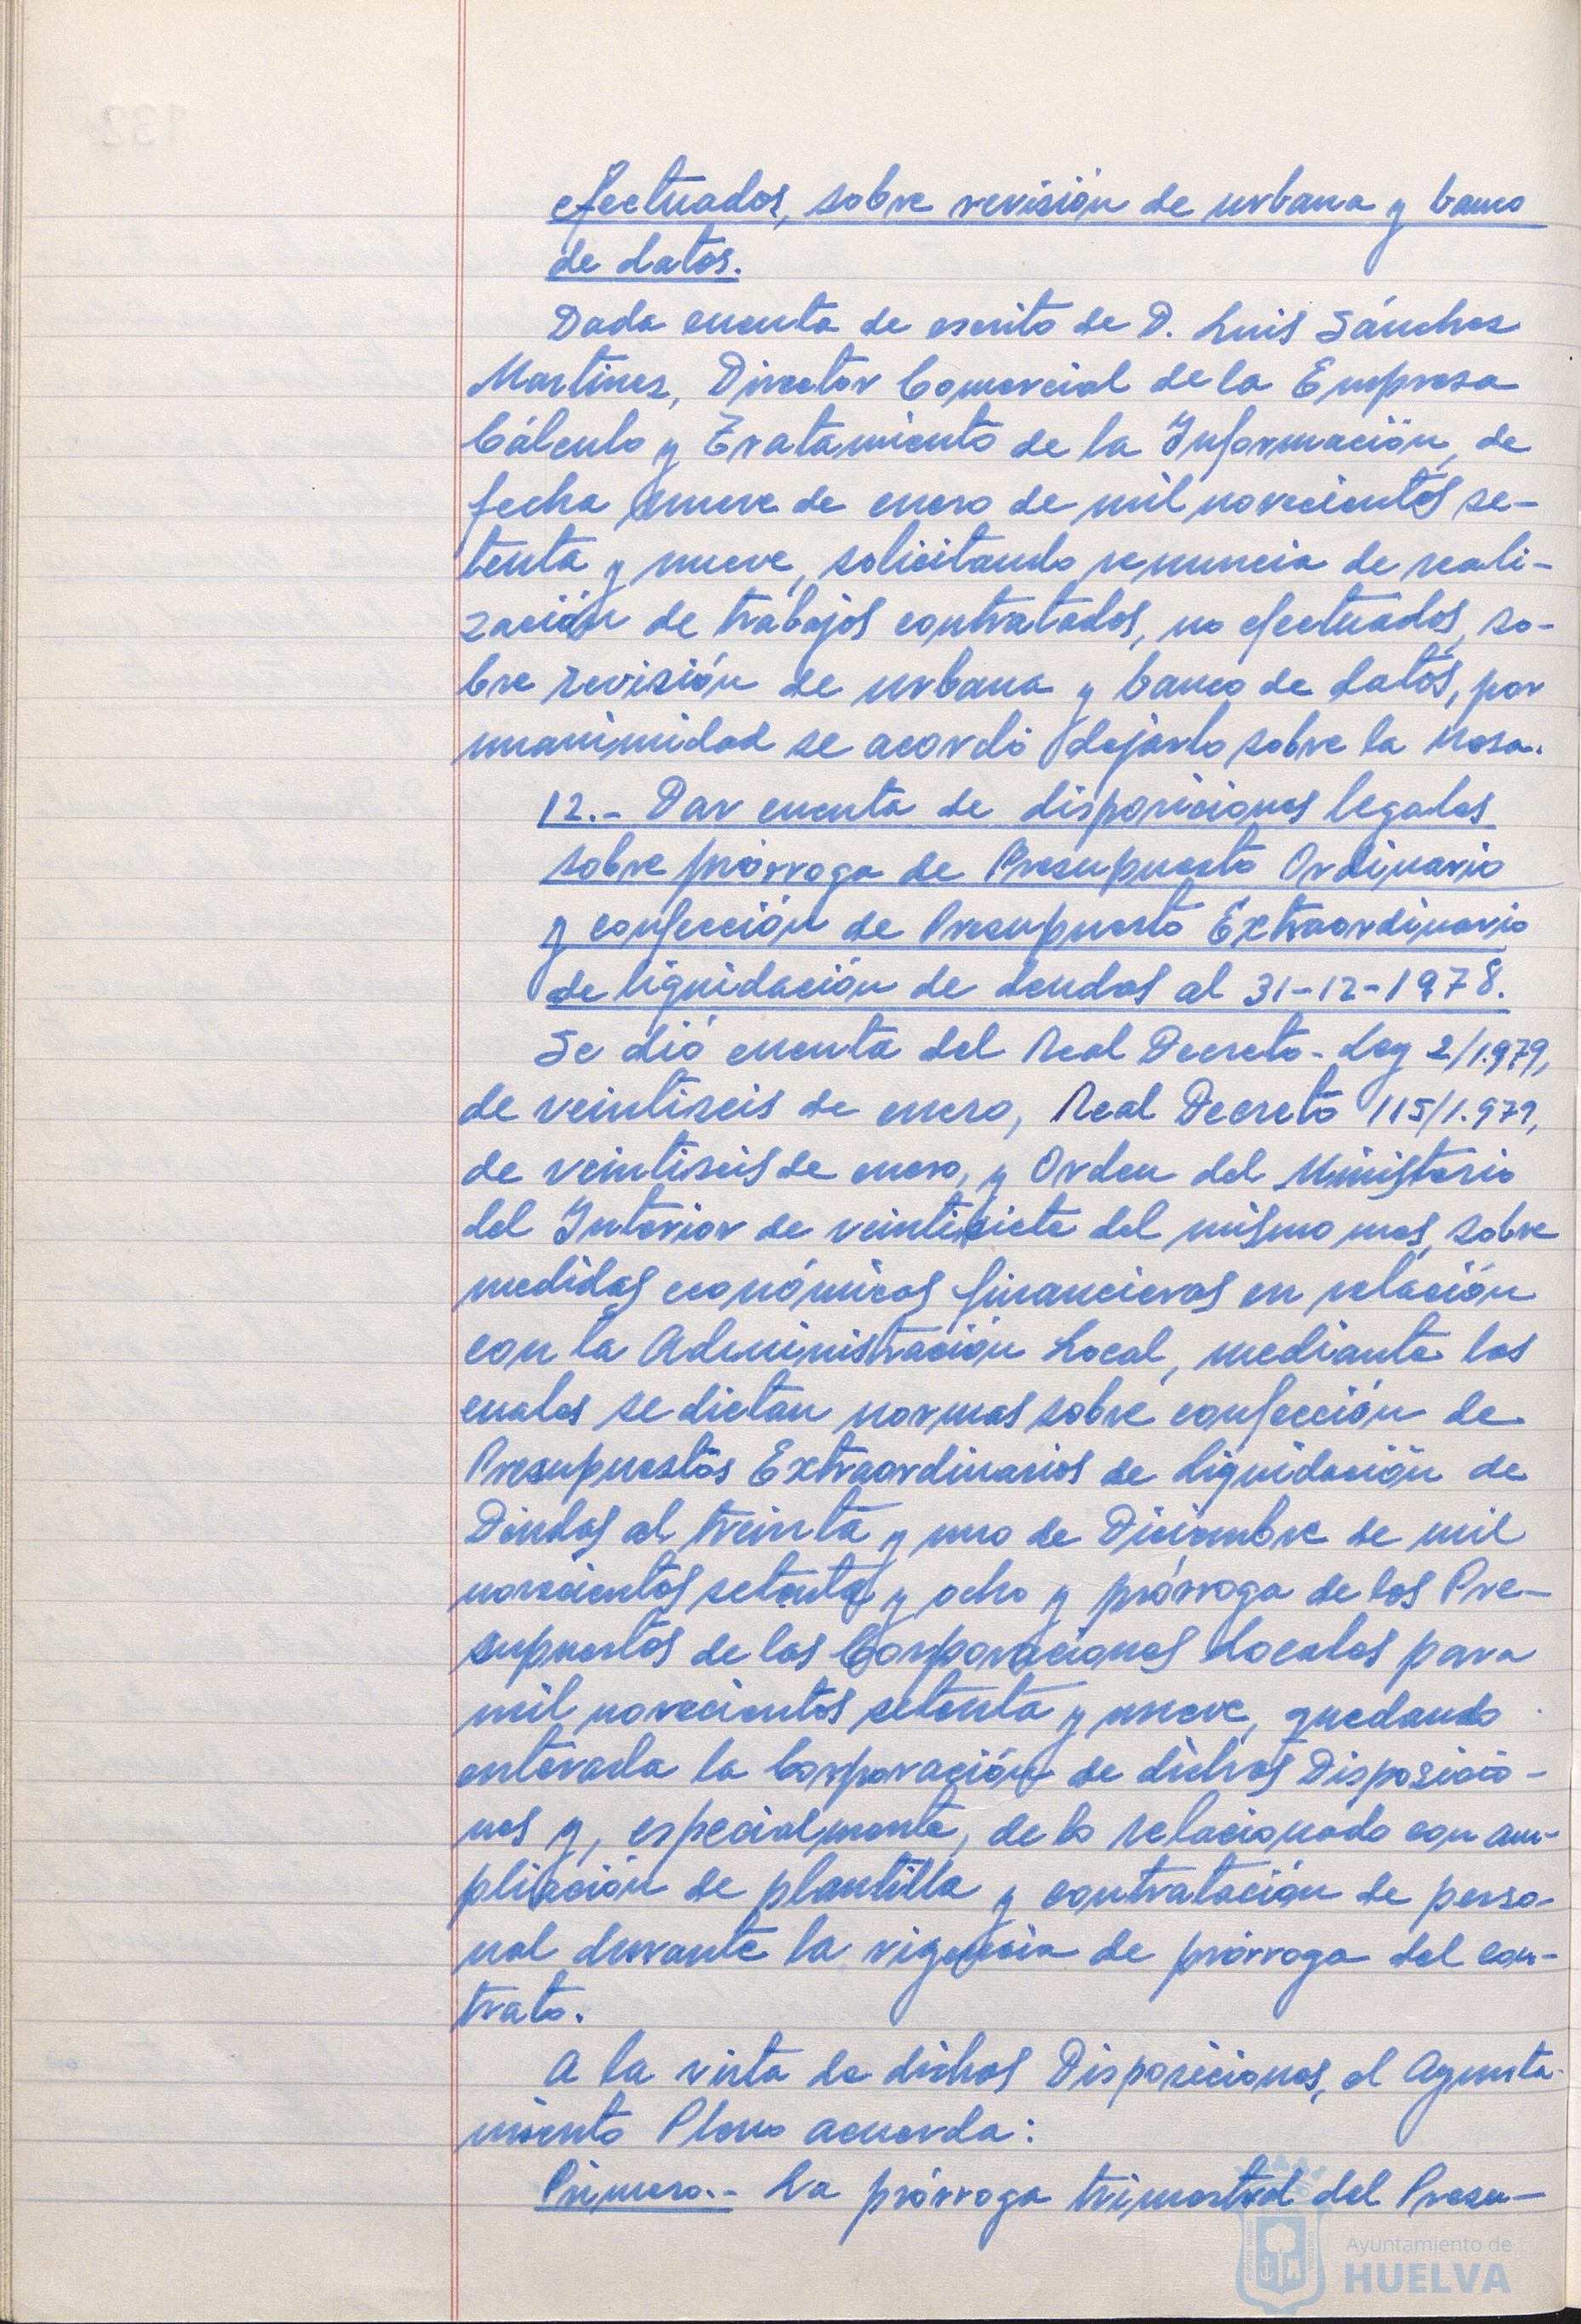 efectuados, sobre revisión de urbana y banco
de datos.
Dada cuenta de escrito de D. Luis Sánchez
Martinez, Director Comercial de la Empresa
Cálculo y Tratamiento de la Información, de
fecha nueve de enero de mil novecientos se-
tenta y nueve, solicitando renuncia de reali-
zación de trabajos contratados, no efectuados, so-
bre revisión de urbana y banco de datos, por
unanimidad se acordó dejarlo sobre la mesa.
12.- Dar cuenta de disposiciones legales
sobre prórroga de Presupuesto Ordinario
y confección de Presupuesto Extraordinario
de liquidación de deudas al 31-12-1978.
Se dió cuenta del Real Decreto-Ley 2/1.979,
de veintiseis de enero, Real Decreto 115/1.979,
de veintiseis de enero, y Orden del Ministerio
del Interior de veintisiete del mismo mes, sobre
medidas económicas financieras en relación
con la Administración Local, mediante las
cuales se dictan normas sobre confección de
Presupuestos Extraordinarios de liquidación de
Deudas al treinta y uno de Diciembre de mil
novecientos setenta y ocho y prórroga de los Pre-
supuestos de las Corporaciones Locales para
mil novecientos setenta y nueve, quedando
enterada la Corporación de dichas Disposicio-
nes y, especialmente, de lo relacionado con am-
pliación de plantilla y contratación de perso-
nal durante la vigencia de prórroga del con-
trato.
A la vista de dichas Disposiciones, el Ayunta-
miento Pleno acuerda:
Primero.- La prórroga trimestral del Presu-
Ayuntamiento de
HUELVA